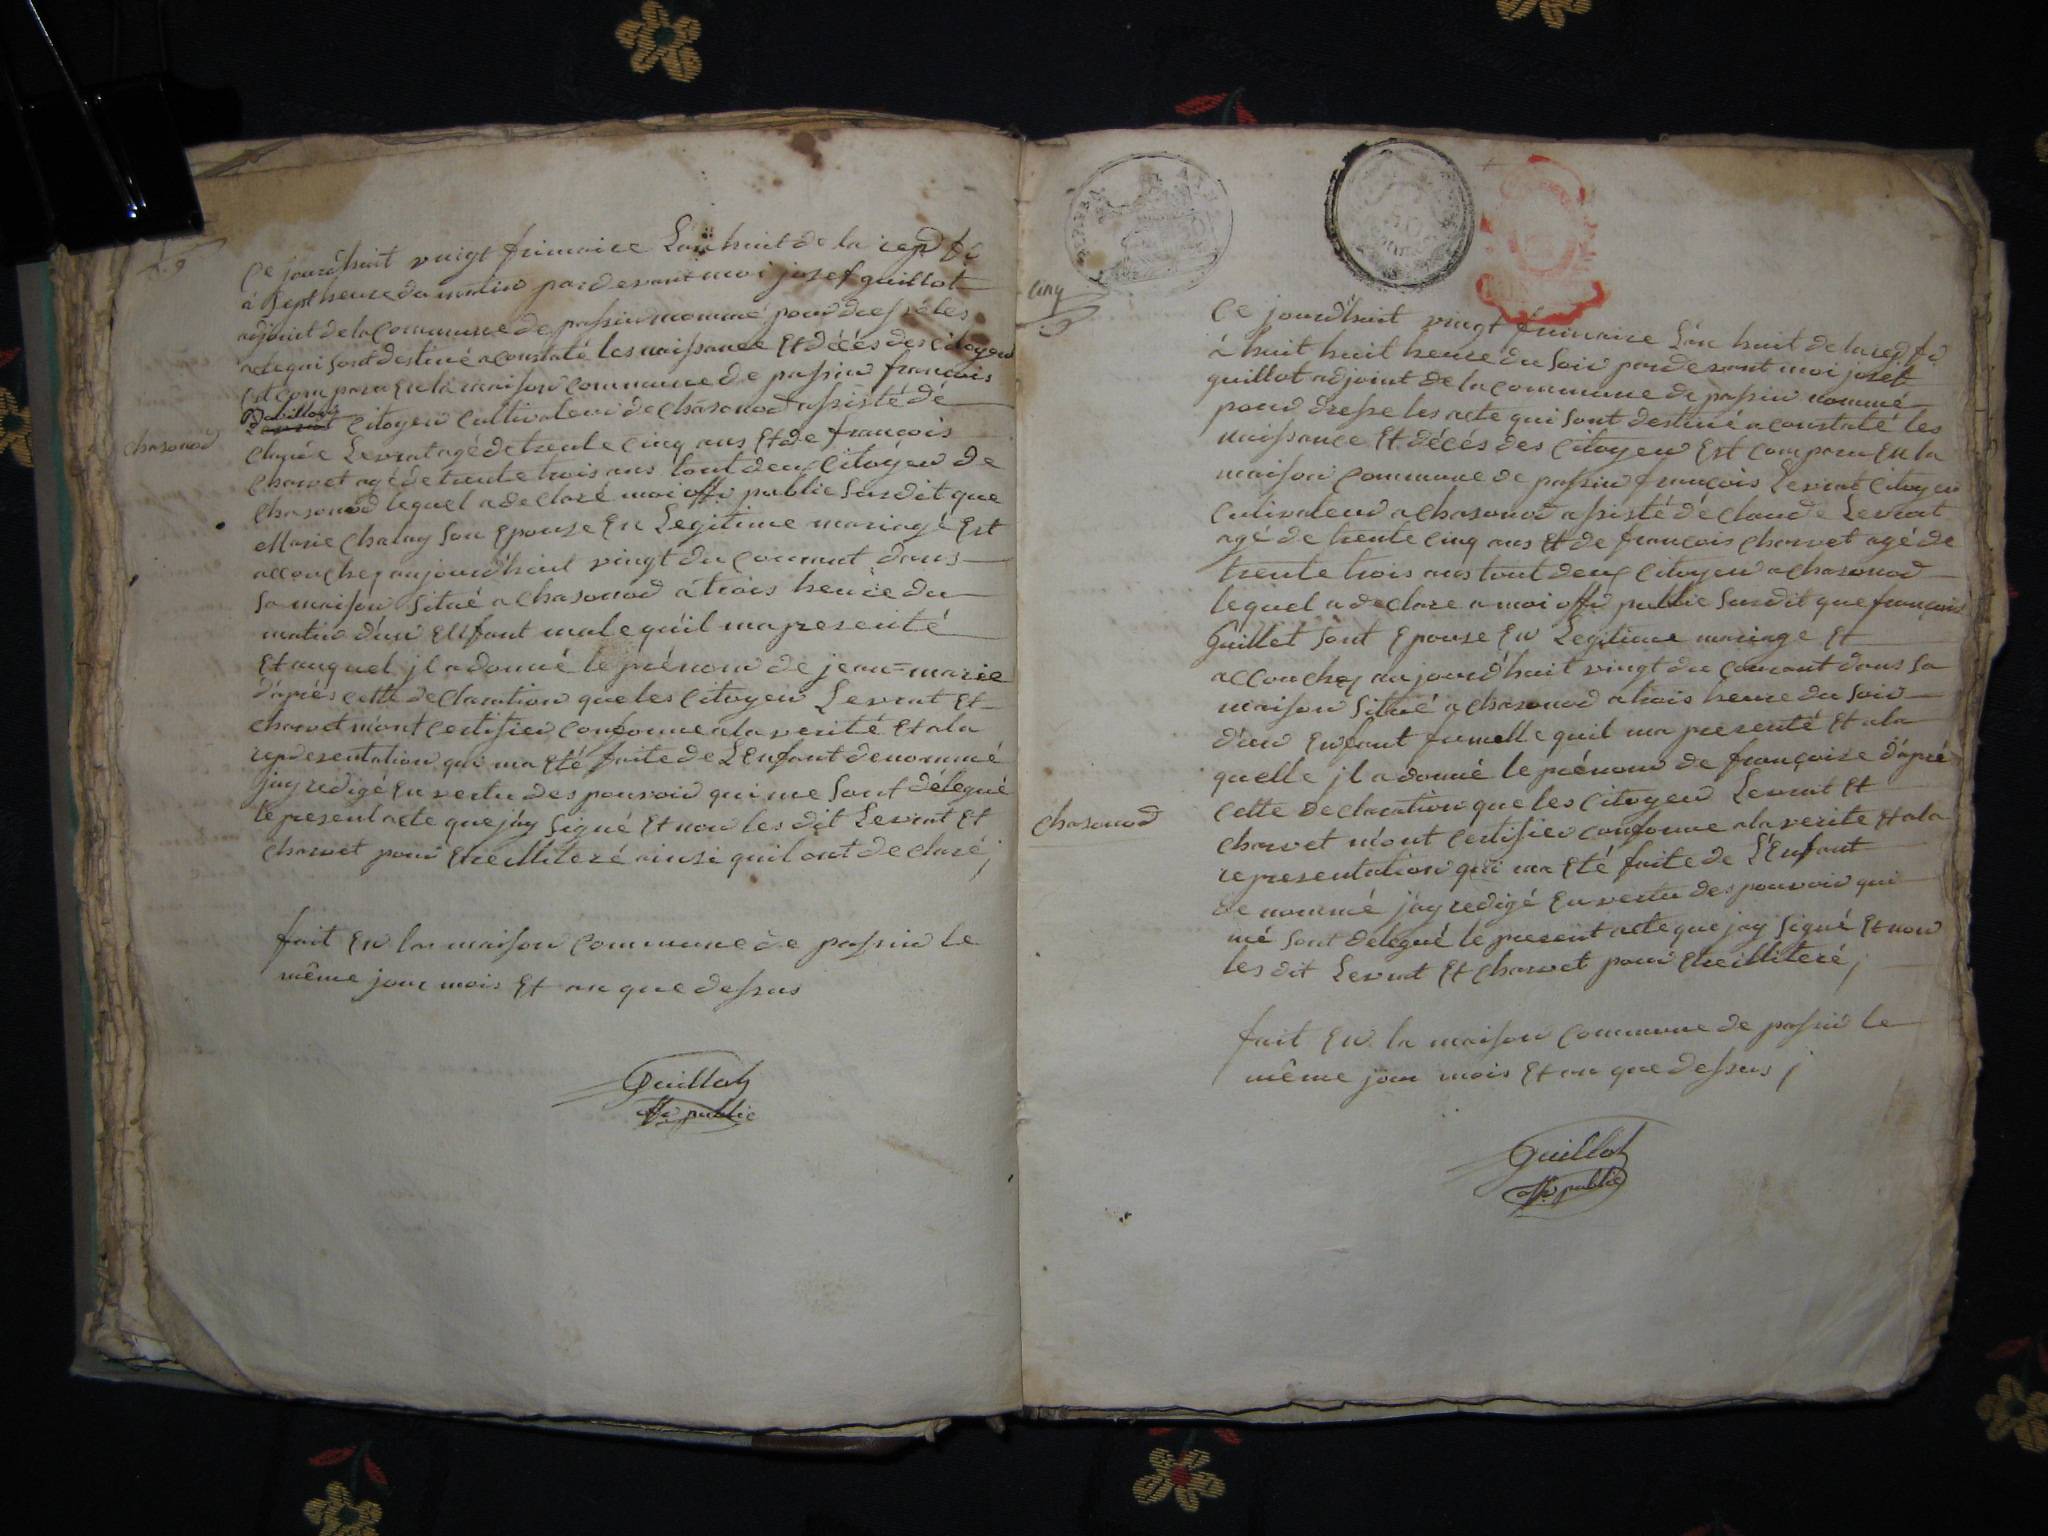 Ce jourd'huit vingt frimaire L'an huit de la rep fd
à Sept heure du matin pardevant moi josef guillot
adjoint de la commune de passin nommé pour dresse les
acte qui sont destiné a constaté les naissance Et décés des citoyen
est comparu En la maison commune de passin françois
Bavillon
Levrat citoyen cultivateur de chasonod assisté dé
chasonod
claude Levrat agé de trente cinq ans Et de françois
charvet agé de trente trois ans tout deux citoyen de
chasonod lequel a declaré moi offr public Susdit que
Marie chalay Son Epouse En Legitime mariage Est
accouchez aujourd'huit vingt du courant dans
sa maison Situé a chasonod a trois heure du
matin d'un Enfant male qu'il ma presenté
Et auquel jl a donné le prénom de jean=marie
d'aprés cette declaration que les citoyen Levrat Et
charvet m'ont certifier conforme a la verité Et a la
representation qui ma Eté faite de L'Enfant denommé
jay redigé En vertu des pouvoir qui me Sont délegué
le present acte que jay Signé Et non les dit Levrat Et
charvet pour Etre illiteré ainsi quil ont declaré ;
fait En la maison commune de passin le
même jour mois Et an que dessus
Guillot
offr public
cinq
Ce jourd'huit vingt frimaire L'an huit de la rep fd
à huit huit heure du Soir pardevant moi josef
guillot adjoint de la commune de passin nommé
pour dresse les acte qui sont destiné a constaté les
naissance Et décés des citoyen Est comparu En la
maison commune de passin françois Levrat citoyen
cultivateur a chasonod assisté dé claude Levrat
agé de trente cinq ans Et de françois charvet agé de
trente trois ans tout deux citoyen a chasonod
lequel a declare a moi offr public Susdit que françoise
Guillet Sont Epouse En Legitime mariage Et
accouchez aujourd'huit vingt du courant dans Sa
maison Situé a chasonod a trois heure du Soir
d'un Enfant fumelle quil ma presenté Et a la
quelle jl a donné le prénom de françoise d'apré
cette declaration que les citoyen Levrat Et
chasonod
charvet m'ont certifier conforme a la verite Et a la
representation qui ma Eté faite de L'Enfant
de nommé jay redigé En vertu des pouvoir qui
mé sont delegué le present acte que jay Signé Et non
les dit Levrat Et charvet pour Etre illiteré ;
fait En la maison commune de passin le
même jour mois Et an que dessus ;
Guillot
offr public